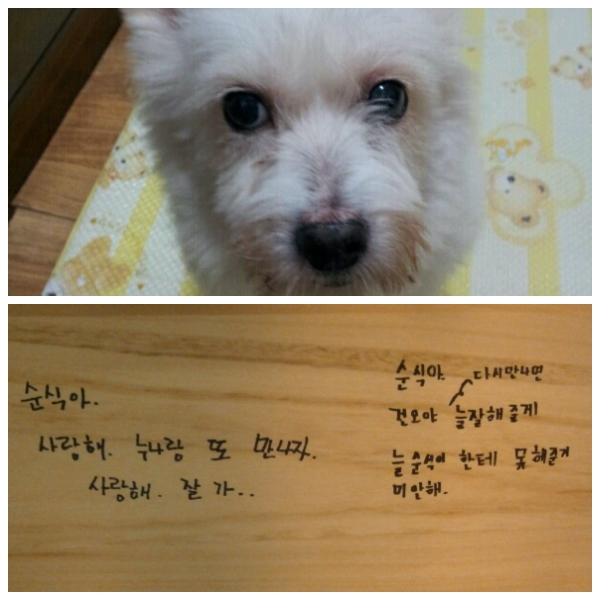 순식아.
사랑해. 누나랑 또 만나자.
사랑해. 잘 가..
순식아. 다시만나면
건오야 늘잘해줄게
늘 순식이 한테 못해준거
미안해.